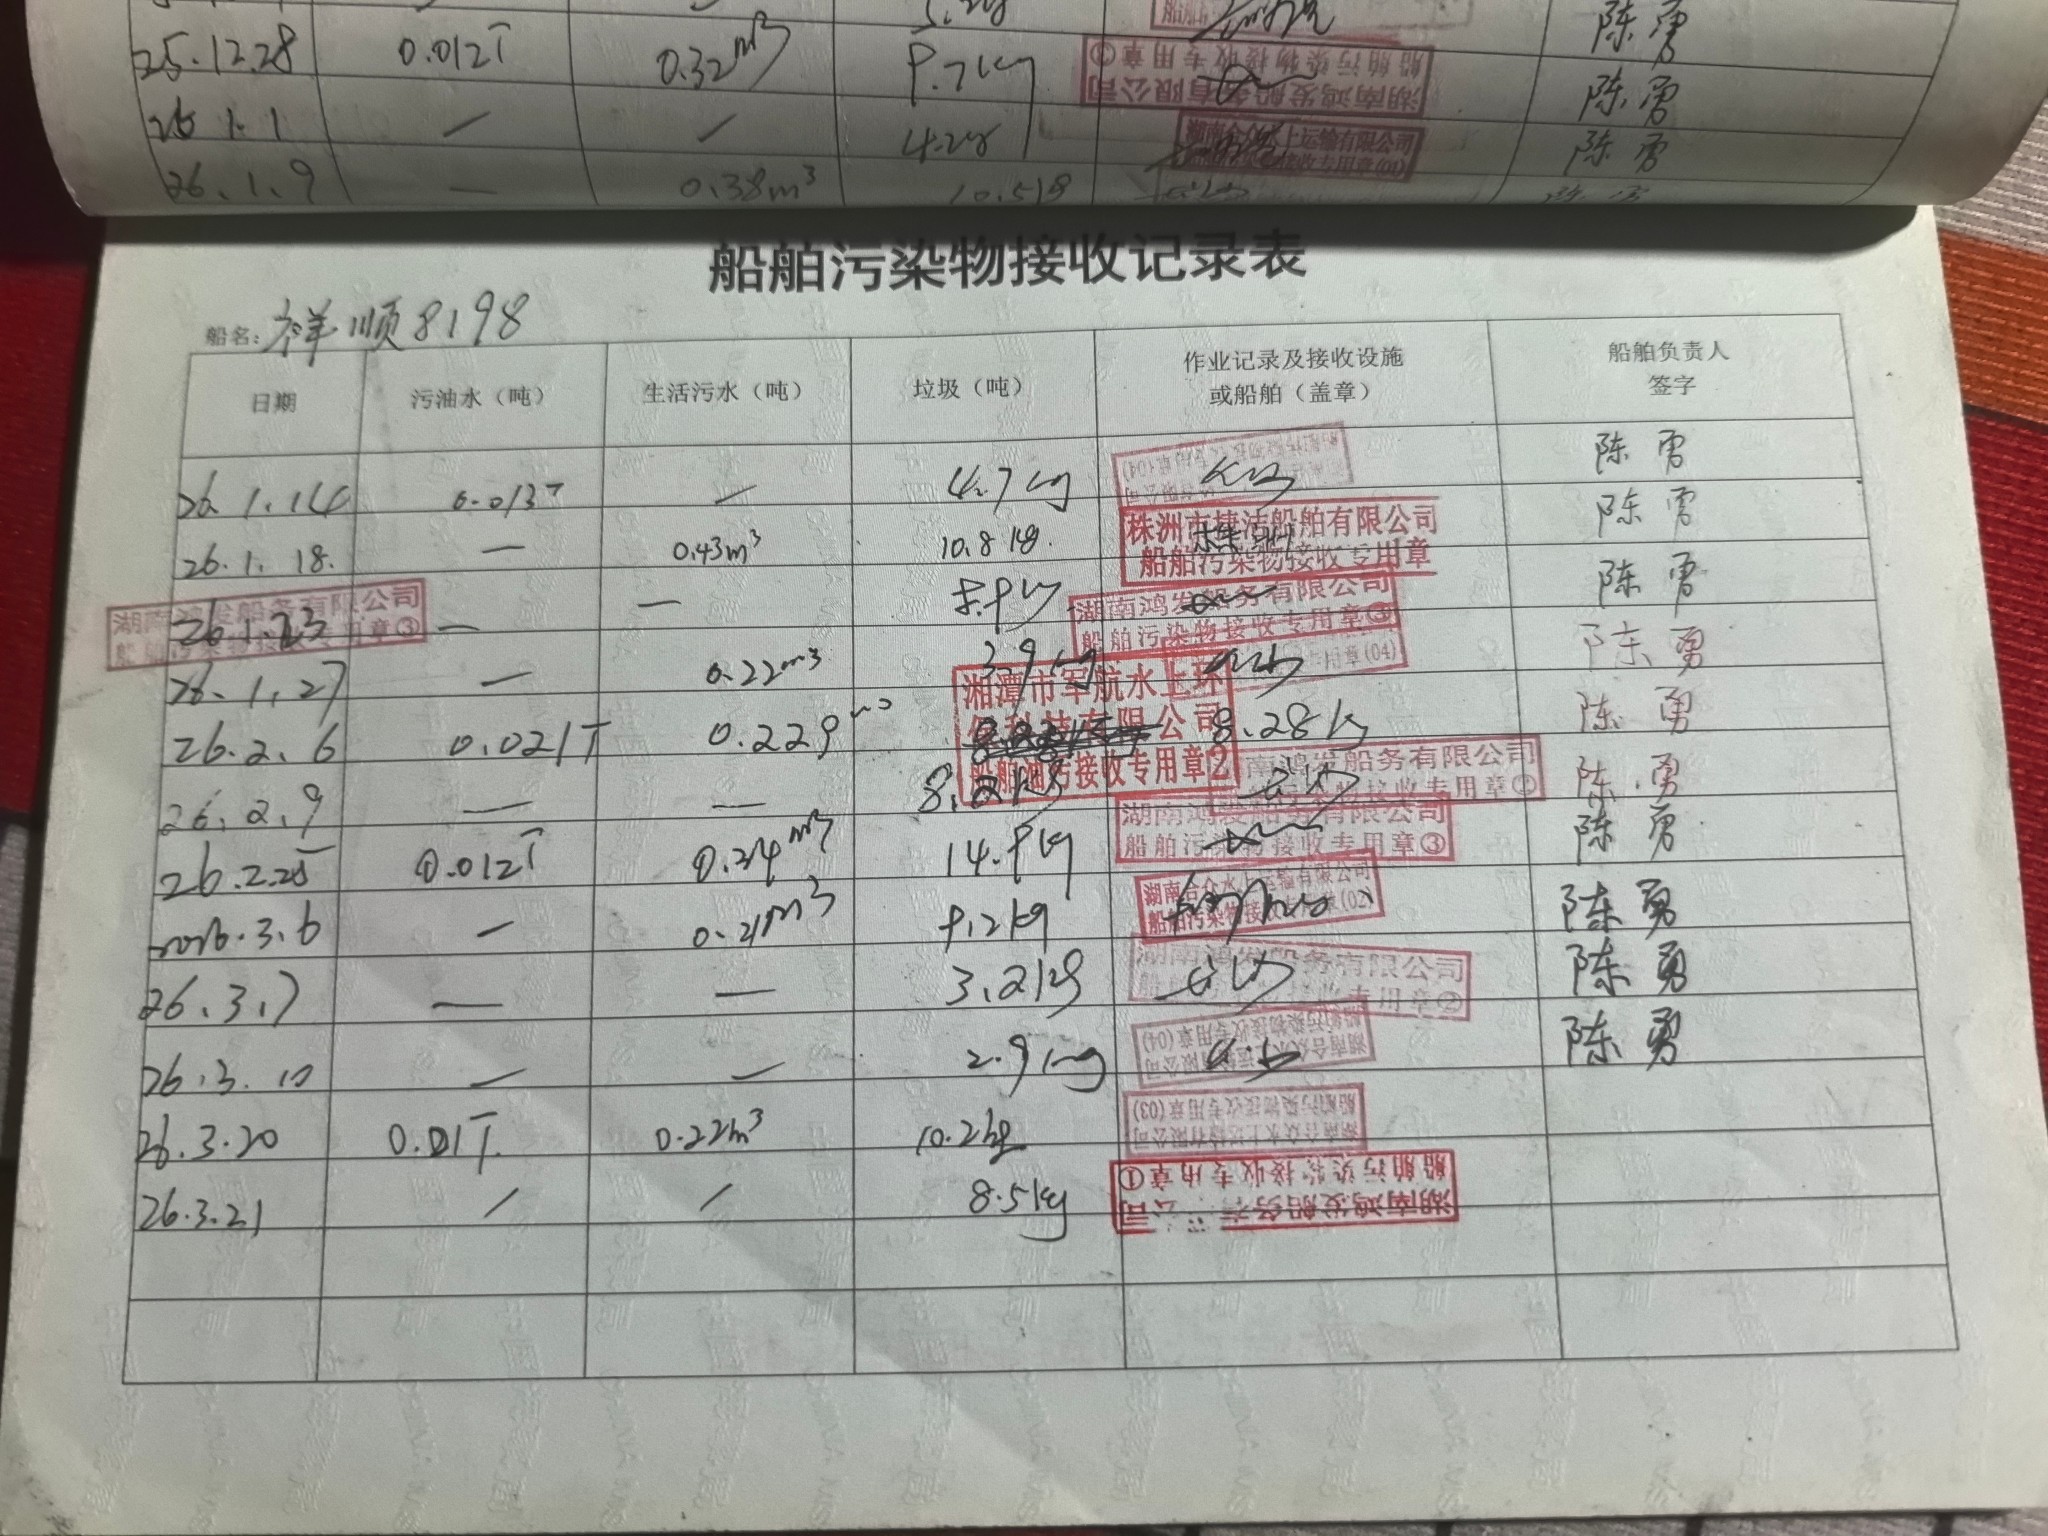 25.12.28 0.012T 0.32m³ 9.7kg 湖南鸿发船务有限公司 船舶污染物接收专用章① 陈勇
26.1.1 — — 4.2kg 湖南合众水上运输有限公司 接收专用章(01) 陈勇
26.1.9 — 0.38m³ 10.5kg
船舶污染物接收记录表
船名：祥顺8198
日期 污油水（吨） 生活污水（吨） 垃圾（吨） 作业记录及接收设施 船舶负责人
或船舶（盖章） 签字
26.1.14 0.013T — 4.7kg 陈勇
26.1.18. — 0.43m³ 10.8kg. 株洲市捷洁船舶有限公司 船舶污染物接收专用章 株洲 陈勇
26.1.23 — — 8.9kg 湖南鸿发船务有限公司 船舶污染物接收专用章③ 陈勇
26.1.27 — 0.22m³ 3.9kg 专用章(04) 陈勇
26.2.6 0.021T 0.229m³ 8.28kg 湘潭市军航水上环保科技有限公司 船舶油污接收专用章2 陈勇
26.2.9 — — 8.2kg 湖南鸿发船务有限公司 陈勇
26.2.25 0.012T 0.34m³ 14.9kg 湖南鸿发船务有限公司 船舶污染物接收专用章③ 陈勇
2026.3.6 — 0.21m³ 9.2kg 湖南合众水上运输有限公司 船舶污染物接收专用章(02) 陈勇
26.3.7 — — 3.2kg 湖南鸿发船务有限公司 船舶污染物接收专用章② 陈勇
26.3.10 — — 2.9kg 湖南合众水上运输有限公司 船舶污染物接收专用章(04) 陈勇
26.3.20 0.01T. 0.22m³ 10.2kg 湖南合众水上运输有限公司 船舶污染物接收专用章(03)
26.3.21 / / 8.5kg 湖南鸿发船务有限公司 船舶污染物接收专用章①